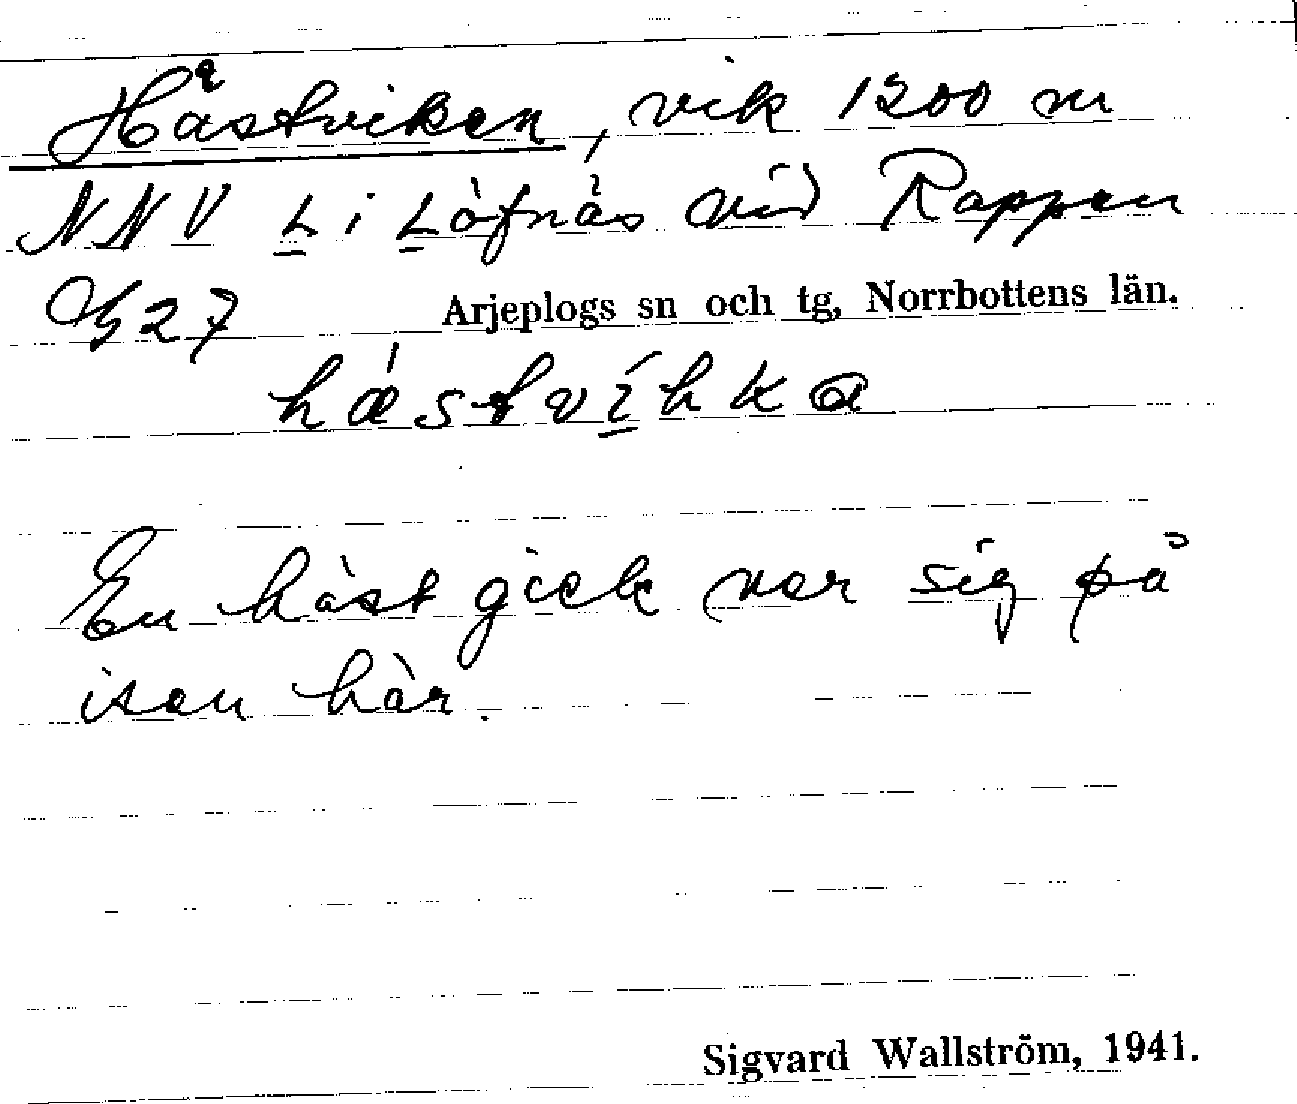 Hästviken, vik 1200 m
NNV L i Löfnäs vid Rappen
G27 Arjeplogs sn och tg, Norrbottens län.
hästvihka
En häst gick ner sig på
isen här.
Sigvard Wallström, 1941.